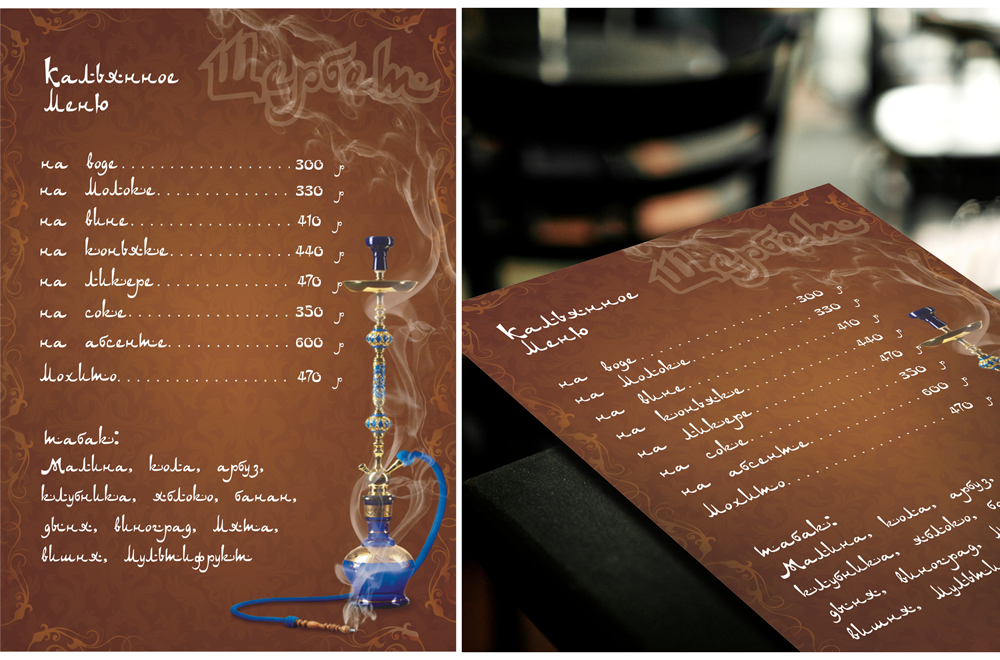 Кальянное
Меню
на воде................... 300 р
на молоке............... 330 р
на вине................... 410 р
на коньяке.............. 440 р
на ликере............... 470 р
на соке................... 350 р
на абсенте............. 600 р
Мохито.................... 470 р
табак:
Малина, кола, арбуз,
клубника, яблоко, банан,
дыня, виноград, мята,
вишня, мультифрукт
Кальянное
Меню
на воде................... 300 р
на молоке............... 330 р
на вине................... 410 р
на коньяке.............. 440 р
на ликере............... 470 р
на соке................... 350 р
на абсенте............. 600 р
Мохито.................... 470 р
табак:
Малина, кола, арбуз,
клубника, яблоко, ба
дыня, виноград, м
вишня, мульти